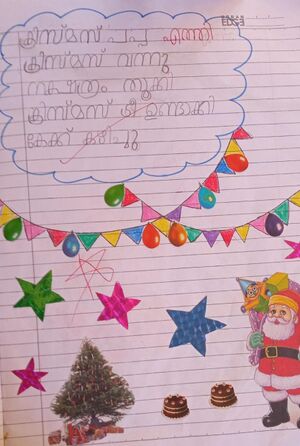 ക്രിസ്മസ് പപ്പ എത്തി
ക്രിസ്മസ് വന്നു
നക്ഷത്രം തൂക്കി
ക്രിസ്മസ് ട്രീ ഉണ്ടാക്കി
കേക്ക് കഴിച്ചു